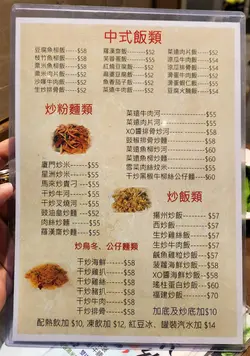 中式飯類
豆腐魚柳飯-----$58
枝竹魚柳飯-----$58
粟米魚柳飯-----$58
粟米肉片飯-----$52
沙嗲牛肉飯-----$52
生炒排骨飯-----$58
羅漢齋飯-----$52
芙蓉蛋飯-----$52
紅燒豆腐飯-----$52
麻婆豆腐飯-----$52
魚香茄子飯-----$52
菜遠肉片飯-----$52
涼瓜牛肉飯-----$52
涼瓜排骨飯-----$58
滑蛋牛肉飯-----$52
滑蛋蝦仁飯-----$58
豆腐火腩飯-----$58
炒粉麵類
廈門炒米-----$55
星洲炒米-----$55
馬來炒貴刁-----$55
干炒牛河-----$55
干炒叉燒河-----$55
豉油皇炒麵-----$52
肉絲炒麵-----$55
羅漢齋炒麵-----$55
菜遠牛肉河-----$55
菜遠肉片河-----$55
XO醬排骨炒河-----$58
豉椒排骨炒麵-----$58
菜遠魚柳炒河-----$58
菜遠魚柳炒麵-----$58
雪菜肉絲炆米-----$55
干炒黑椒牛柳絲公仔麵--$60
炒飯類
揚州炒飯-----$55
西炒飯-----$55
生炒雞絲飯-----$55
生炒牛肉飯-----$55
鹹魚雞粒炒飯-----$58
菠蘿海鮮炒飯-----$58
XO醬海鮮炒飯-----$58
瑤柱蛋白炒飯-----$58
福建炒飯-----$70
加底及炒底加$10
炒烏冬、公仔麵類
干炒海鮮-----$58
干炒雞扒-----$58
干炒雞絲-----$58
干炒豬扒-----$58
干炒牛肉-----$58
干炒排骨-----$58
配熱飲加 $10, 凍飲加 $12, 紅豆冰、罐裝汽水加 $14